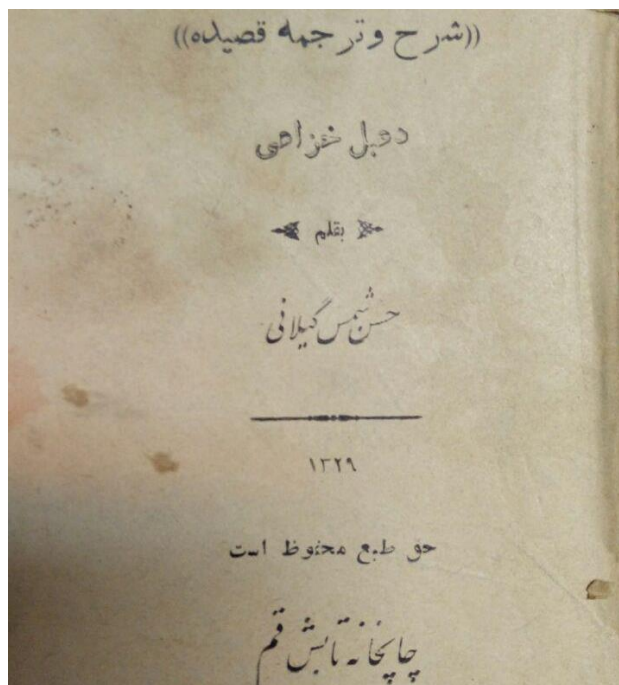 ((شرح و ترجمه قصیده))
دعبل خزاعی
بقلم
حسن شمس گیلانی
۱۳۲۹
حق طبع محفوظ است
چاپخانه تابش قم